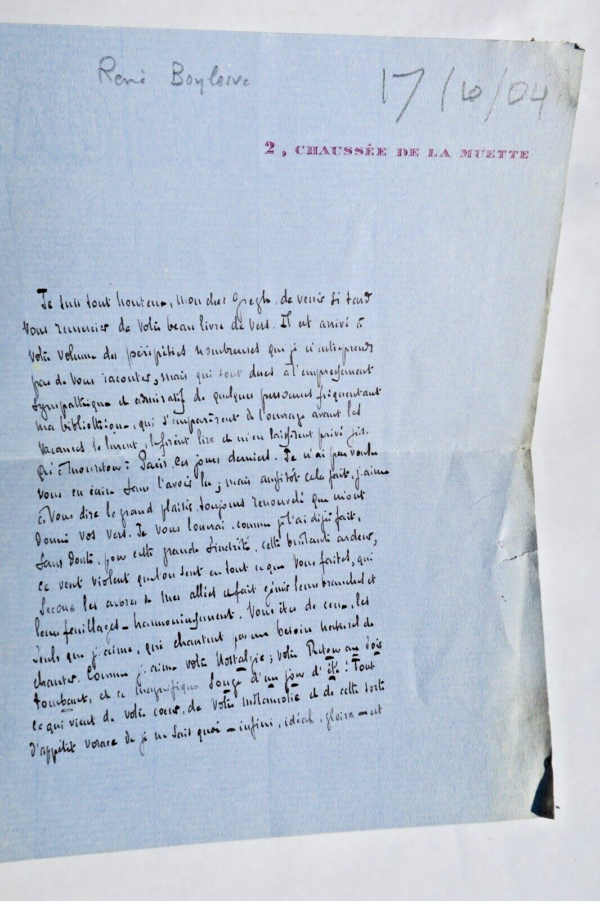 René Boylesve
17/10/04
2, CHAUSSÉE DE LA MUETTE
Je suis tout honteux, mon cher Gregh, de venir si tard
vous remercier de votre beau livre de vers. Il est arrivé à
votre volume des péripéties nombreuses que je n'entreprends
pas de vous raconter, mais qui sont dues à l'empressement
sympathique et admiratif de quelques personnes fréquentant
ma bibliothèque, qui s'emparèrent de l'ouvrage avant les
vacances le lurent, le firent lire et m'en laissèrent privé jus-
qu'à mon retour à Paris ces jours derniers. Je n'ai pas voulu
vous en écrire sans l'avoir lu ; mais aussitôt cela fait, j'aime
à vous dire le grand plaisir toujours renouvelé que m'ont
donné vos vers. Je vous louerai, comme je l'ai déjà fait,
sans doute, pour cette grande sincérité, cette brûlante ardeur,
ce vent violent que l'on sent en tout ce que vous faites, qui
secoue les arbres de mes allées et fait gémir leurs branches et
leurs feuillages – harmonieusement. Vous êtes de ceux, les
seuls que j'aime, qui chantent par un besoin naturel de
chanter. Comme j'aime votre Nostalgie ; votre Retour au soir
tombant, et ce magnifique Songe d'un jour d'été ! Tout
ce qui vient de votre cœur, de votre mélancolie et de cette sorte
d'appétit vorace de je ne sais quoi – infini, idéal, gloire – est